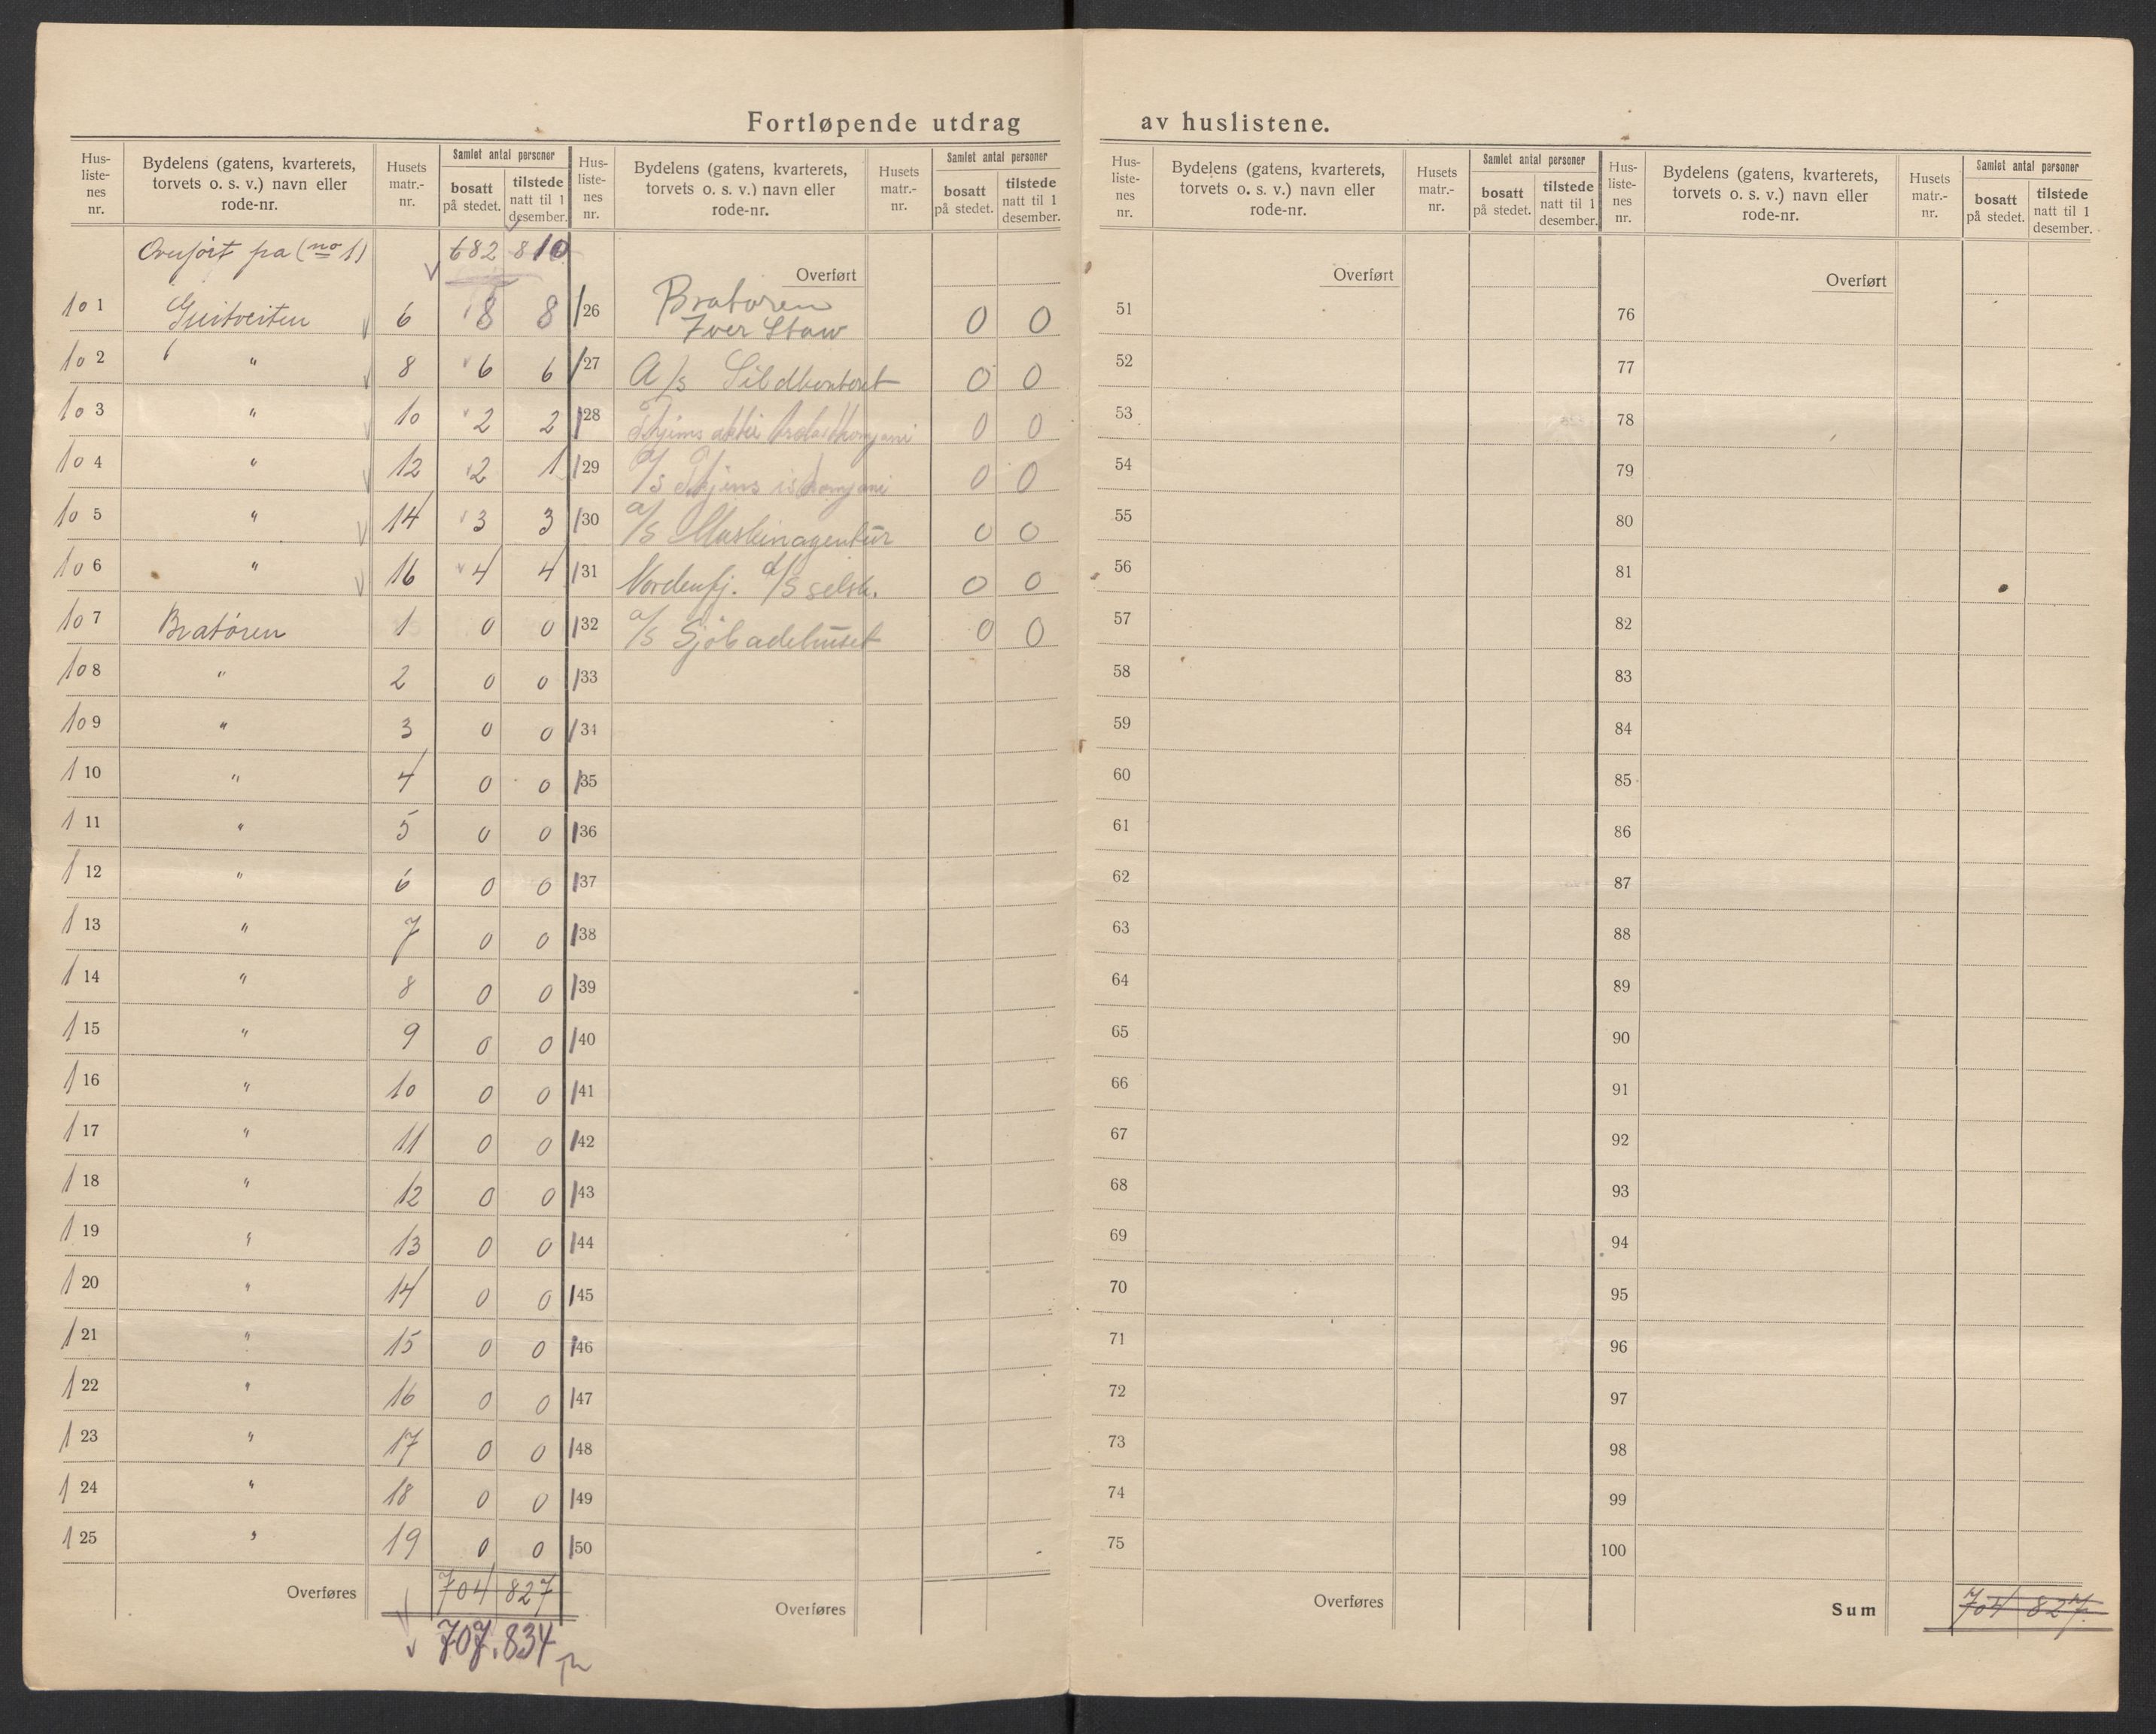 Fortløpende utdrag av huslistene.
Hus-listenes nr. | Bydelens (gatens, kvarterets, torvets o. s. v.) navn eller rode-nr. | Husets matr.-nr. | Samlet antal personer | bosatt på stedet. | tilstede natt til 1 desember.
Hus-listenes nr. | Bydelens (gatens, kvarterets, torvets o. s. v.) navn eller rode-nr. | Husets matr.-nr. | Samlet antal personer | bosatt på stedet. | tilstede natt til 1 desember.
Hus-listenes nr. | Bydelens (gatens, kvarterets, torvets o. s. v.) navn eller rode-nr. | Husets matr.-nr. | Samlet antal personer | bosatt på stedet. | tilstede natt til 1 desember.
Hus-listenes nr. | Bydelens (gatens, kvarterets, torvets o. s. v.) navn eller rode-nr. | Husets matr.-nr. | Samlet antal personer | bosatt på stedet. | tilstede natt til 1 desember.
Overført fra (no 1) 682 810
101 6 8 8
102 " 8 6 6
103 " 10 2 2
104 " 12 2 1
105 " 14 3 3
106 " 16 4 4
107 Bratøren 1 0 0
108 " 2 0 0
109 " 3 0 0
110 " 4 0 0
111 " 5 0 0
112 " 6 0 0
113 " 7 0 0
114 " 8 0 0
115 " 9 0 0
116 " 10 0 0
117 " 11 0 0
118 " 12 0 0
119 " 13 0 0
120 " 14 0 0
121 " 15 0 0
122 " 16 0 0
123 " 17 0 0
124 " 18 0 0
125 " 19 0 0
Overføres 704 827
707. 834
Overført
126 Bratøren
Iver Staw 0 0
127 A/s Sildkontoret 0 0
128 0 0
129 a/s Thjems iskompani 0 0
130 a/s Maskinagentur 0 0
131 Nordenfj. d/s selsk. 0 0
132 a/s Sjöbadehuset 0 0
133
134
135
136
137
138
139
140
141
142
143
144
145
146
147
148
149
150
Overføres
Overført
51
52
53
54
55
56
57
58
59
60
61
62
63
64
65
66
67
68
69
70
71
72
73
74
75
Overføres
Overført
76
77
78
79
80
81
82
83
84
85
86
87
88
89
90
91
92
93
94
95
96
97
98
99
100
Sum 704 827